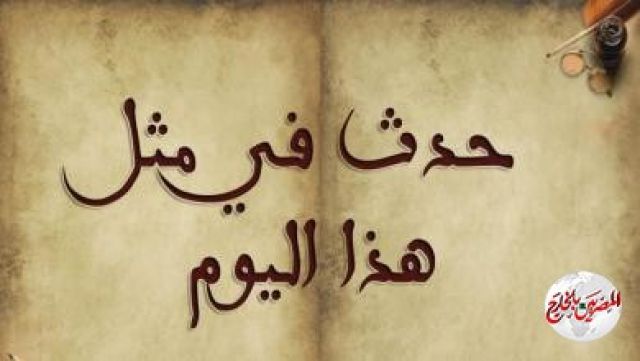 حدث في مثل
هذا اليوم
المصريين بالخارج